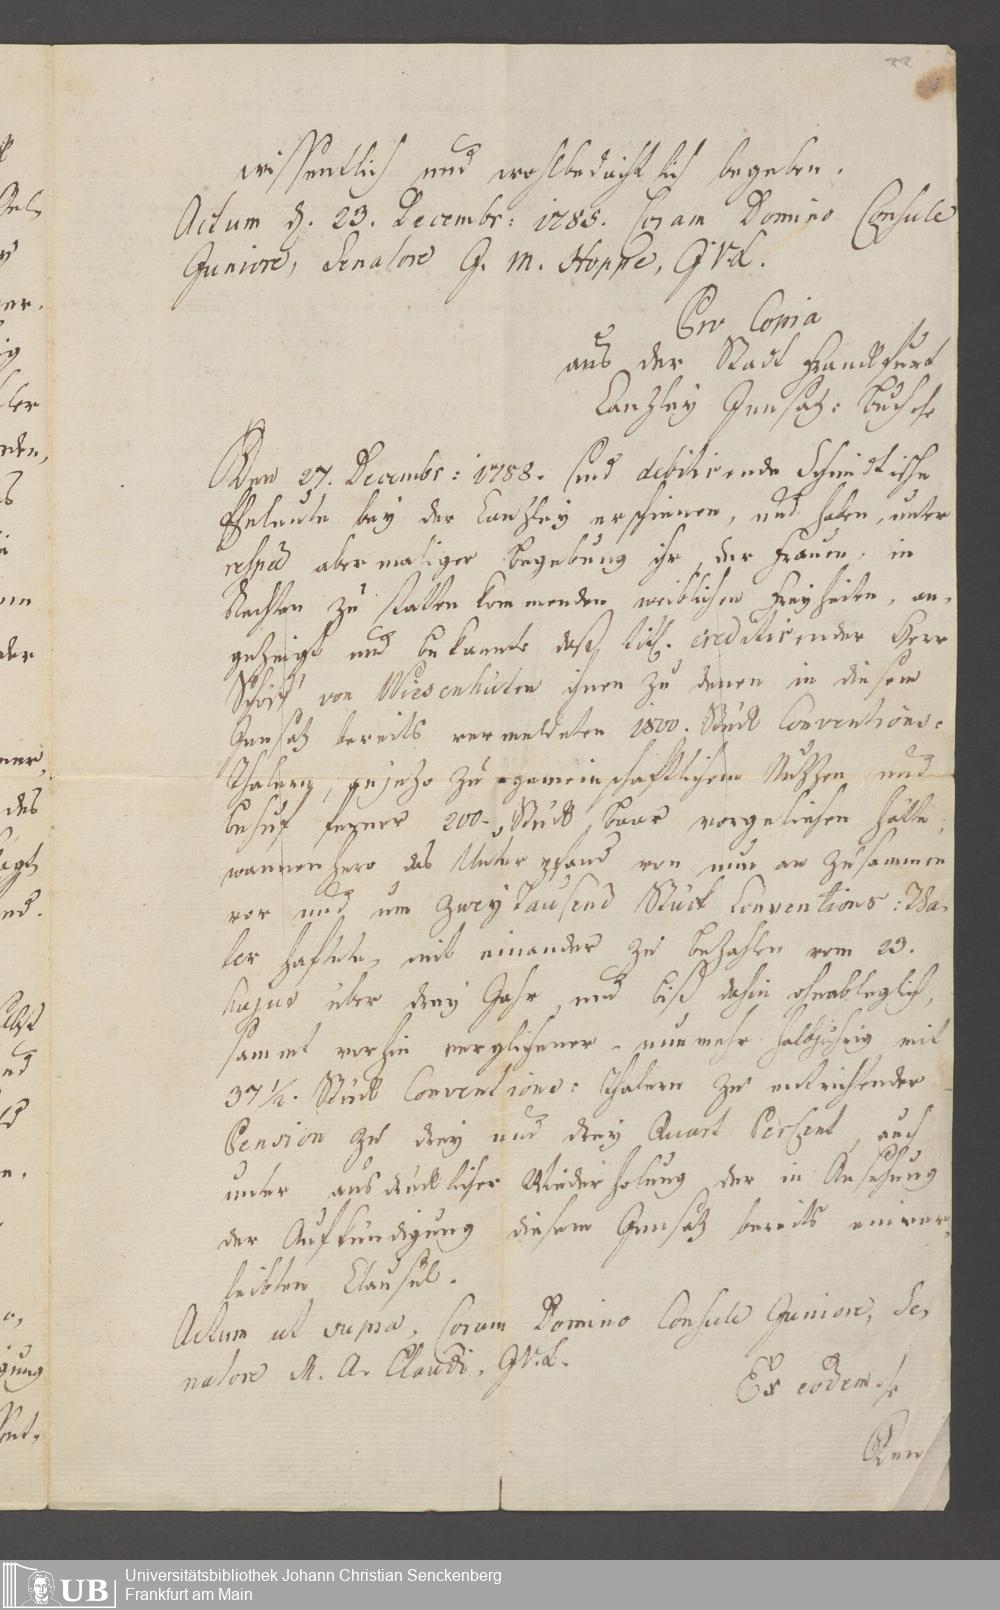 22
wissentlich und wohlbedächtlich begeben.
Actum d. 23. Decembr: 1785. Coram Domino Consule
Juniore, Senatore J. M. Hoppe, JVL.
Pro Copia
aus der Stadt Franckfurt
Canzley Innsatz: Buch
Den 27. Decembr: 1788. sind debitirende Schmidtische
Eheleute bey der Canzley erschienen, und haben, unter
resped abermaliger Begebung ihr, der Frauen, in
Rechten zu statten kommenden weiblichen Freyheiten, an-
gezeigt und bekannt, daß tit. creditirender Herr
Schöff von Wiesenhüten ihnen zu denen in diesem
Innsatz bereits vermeldeten 1800. Stück Conventions-
Thalern, anjezo zu gemeinschaftlichem Nuzzen und
Behuf ferner 200. Stück baar vorgeliehen hätte,
wannenhero das Unterpfand von nun an zusammen
vor und um zwey Tausend Stück Conventions: Tha-
ler hafte, mit einander zu bezahlen vom 23.
hujus über drey Jahr, und biß dahin ohnableglich,
sammt vorhin verglichener - nunmehr halbjährig mit
37 1/2. Stück Conventions: Thalern zu entrichtender
Pension zu drey und drey Quart Percent, auch
unter ausdrücklicher Wiederholung der in Ansehung
der Aufkündigung diesem Innsatz bereits einver-
leibten Clausul.
Actum ut supra, Coram Domino Consule Juniore, Se-
natore M. A. Claudi, JVL.
Ex eodem
Den
UB
Universitätsbibliothek Johann Christian Senckenberg
Frankfurt am Main